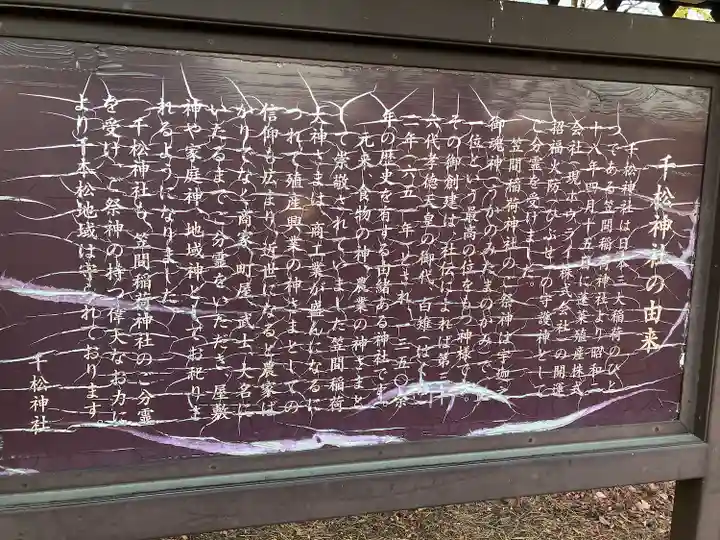 千松神社の由来
千松神社は日本三大稲荷のひと
つである笠間稲荷神社より昭和二
十八年四月十五日に蓬莱殖産株式
会社(現ホウライ株式会社)の開運
招福火防(ひぶせ)の守護神として
ご分霊を受けました。
笠間稲荷神社のご祭神は宇迦之
御魂神(うかのみたまのかみ)で正
一位という最高の位をもつ神様です。
その御創建は、社伝によれば第三十
六代孝徳天皇の御代、白雉(はくち)
二年(六五一年)とされ、一三五〇余
年の歴史を有する由緒ある神社です。
元来、食物の神、農業の神さまと
して崇敬されていました笠間稲荷
大神さまは、商工業が盛んになるに
つれて殖産興業の神さまとしての
信仰も広まり、近世になると農家ば
かりでなく商家、町屋、武士、大名に
いたるまでご分霊をいただき、屋敷
神や家庭神、地域神としてお祀りさ
れるようになりました。
千松神社も笠間稲荷神社のご分霊
を受け、ご祭神の持つ偉大なお力に
より千本松地域は守られております。
千松神社